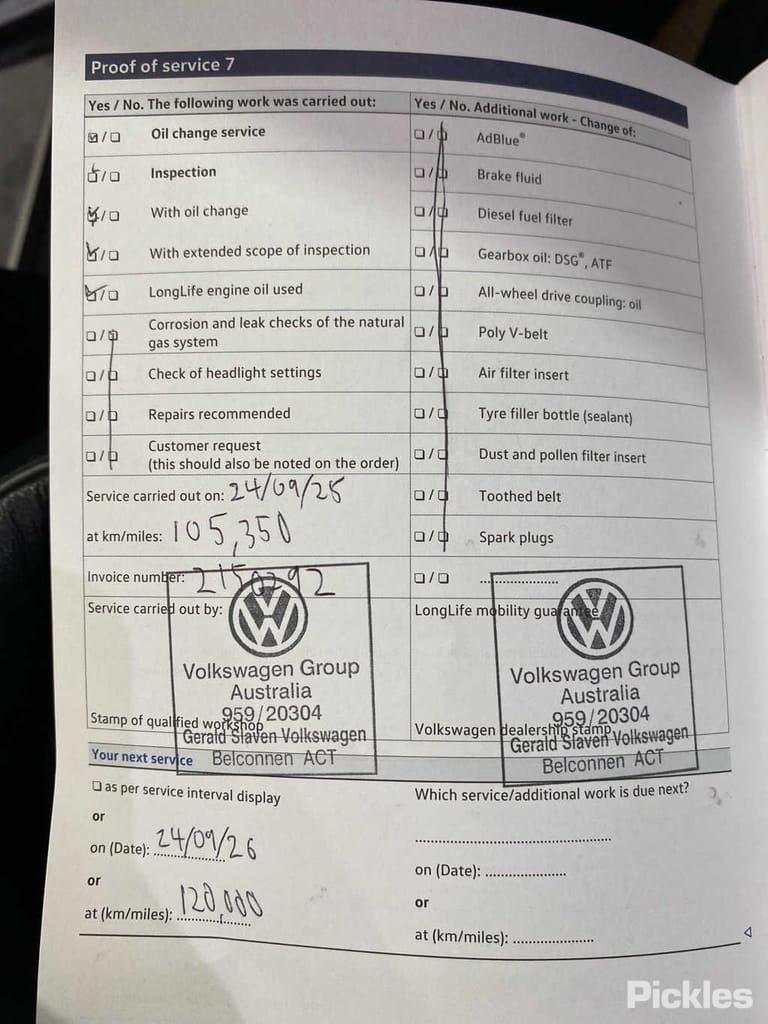 Proof of service 7
Yes / No. The following work was carried out:
Oil change service
Inspection
With oil change
With extended scope of inspection
LongLife engine oil used
Corrosion and leak checks of the natural
gas system
Check of headlight settings
Repairs recommended
Customer request
(this should also be noted on the order)
Service carried out on: 24/09/25
at km/miles: 105,350
Invoice number: 2150292
Service carried out by:
Volkswagen Group
Australia
959/20304
Stamp of qualified workshop
Gerald Slaven Volkswagen
Belconnen ACT
Yes / No. Additional work - Change of:
AdBlue®
Brake fluid
Diesel fuel filter
Gearbox oil: DSG®, ATF
All-wheel drive coupling: oil
Poly V-belt
Air filter insert
Tyre filler bottle (sealant)
Dust and pollen filter insert
Toothed belt
Spark plugs
....................
LongLife mobility guarantee
Volkswagen Group
Australia
959/20304
Volkswagen dealership stamp
Gerald Slaven Volkswagen
Belconnen ACT
Your next service
as per service interval display
or
on (Date): 24/09/26
or
at (km/miles): 120,000
Which service/additional work is due next?
..................................................
on (Date): .....................
or
at (km/miles): .....................
Pickles